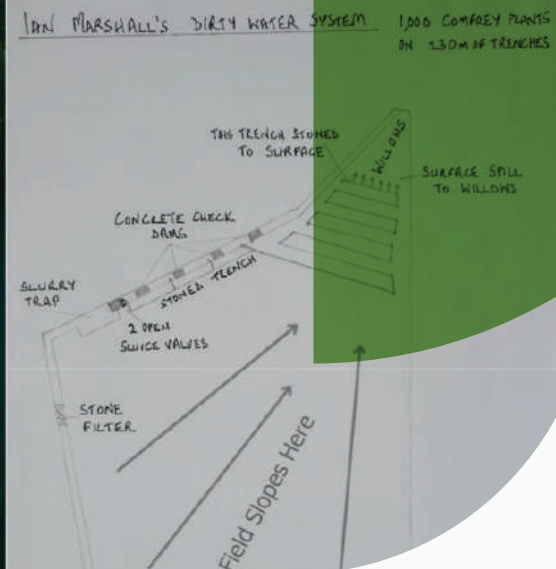 IAN MARSHALL'S DIRTY WATER SYSTEM
1,000 COMFREY PLANTS
ON 230M OF TRENCHES
THIS TRENCH STONED
TO SURFACE
WILLOWS
SURFACE SPILL
TO WILLOWS
CONCRETE CHECK
DAMS
SLURRY
TRAP
STONED TRENCH
2 OPEN
SLUICE VALVES
STONE
FILTER
Field Slopes Here